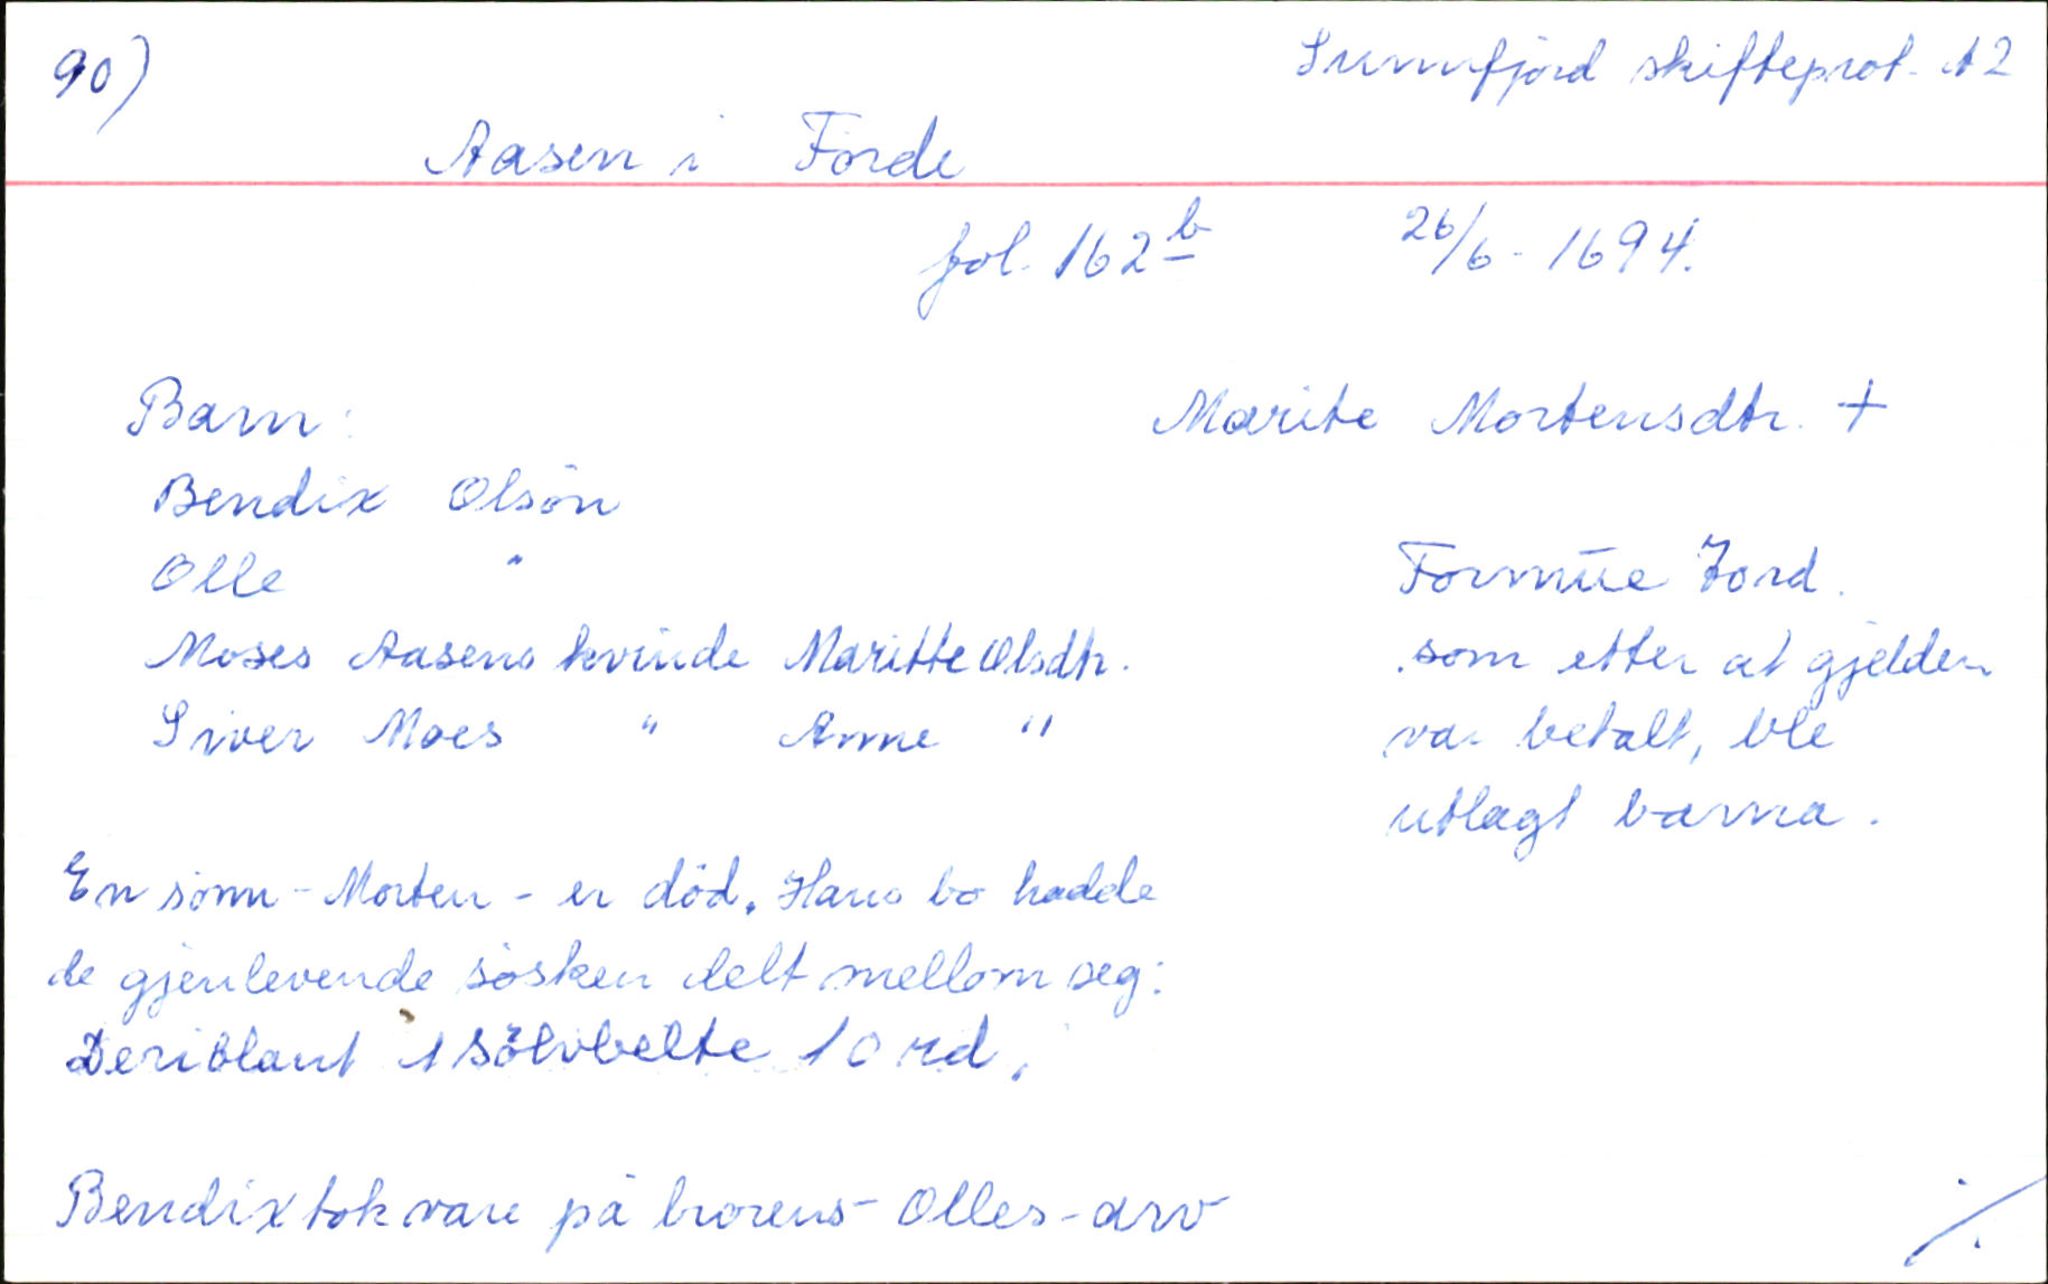 90)
Sunnfjord skifteprot. A2
Aasen i Förde
fol. 162 b
26/6 - 1694.
Barn:
Marite Mortensdtr. +
Bendix Olsön
Olle "
Formüe Jord.
Moses Aasens kvinde Maritte Olsdtr.
som etter at gjelden
Siver Moes " Anne "
var betalt, ble
utlagt barna.
En sönn - Morten - er död. Hans bo hadde
de gjenlevende sösken delt mellom seg:
Deriblant 1 Sölvbelte 10 rd.
Bendix tok vare på brorens - Olles - arv
./.